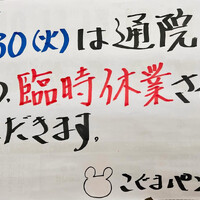 30(火)は通院
臨時休業さ
だきます。
こぐまパン